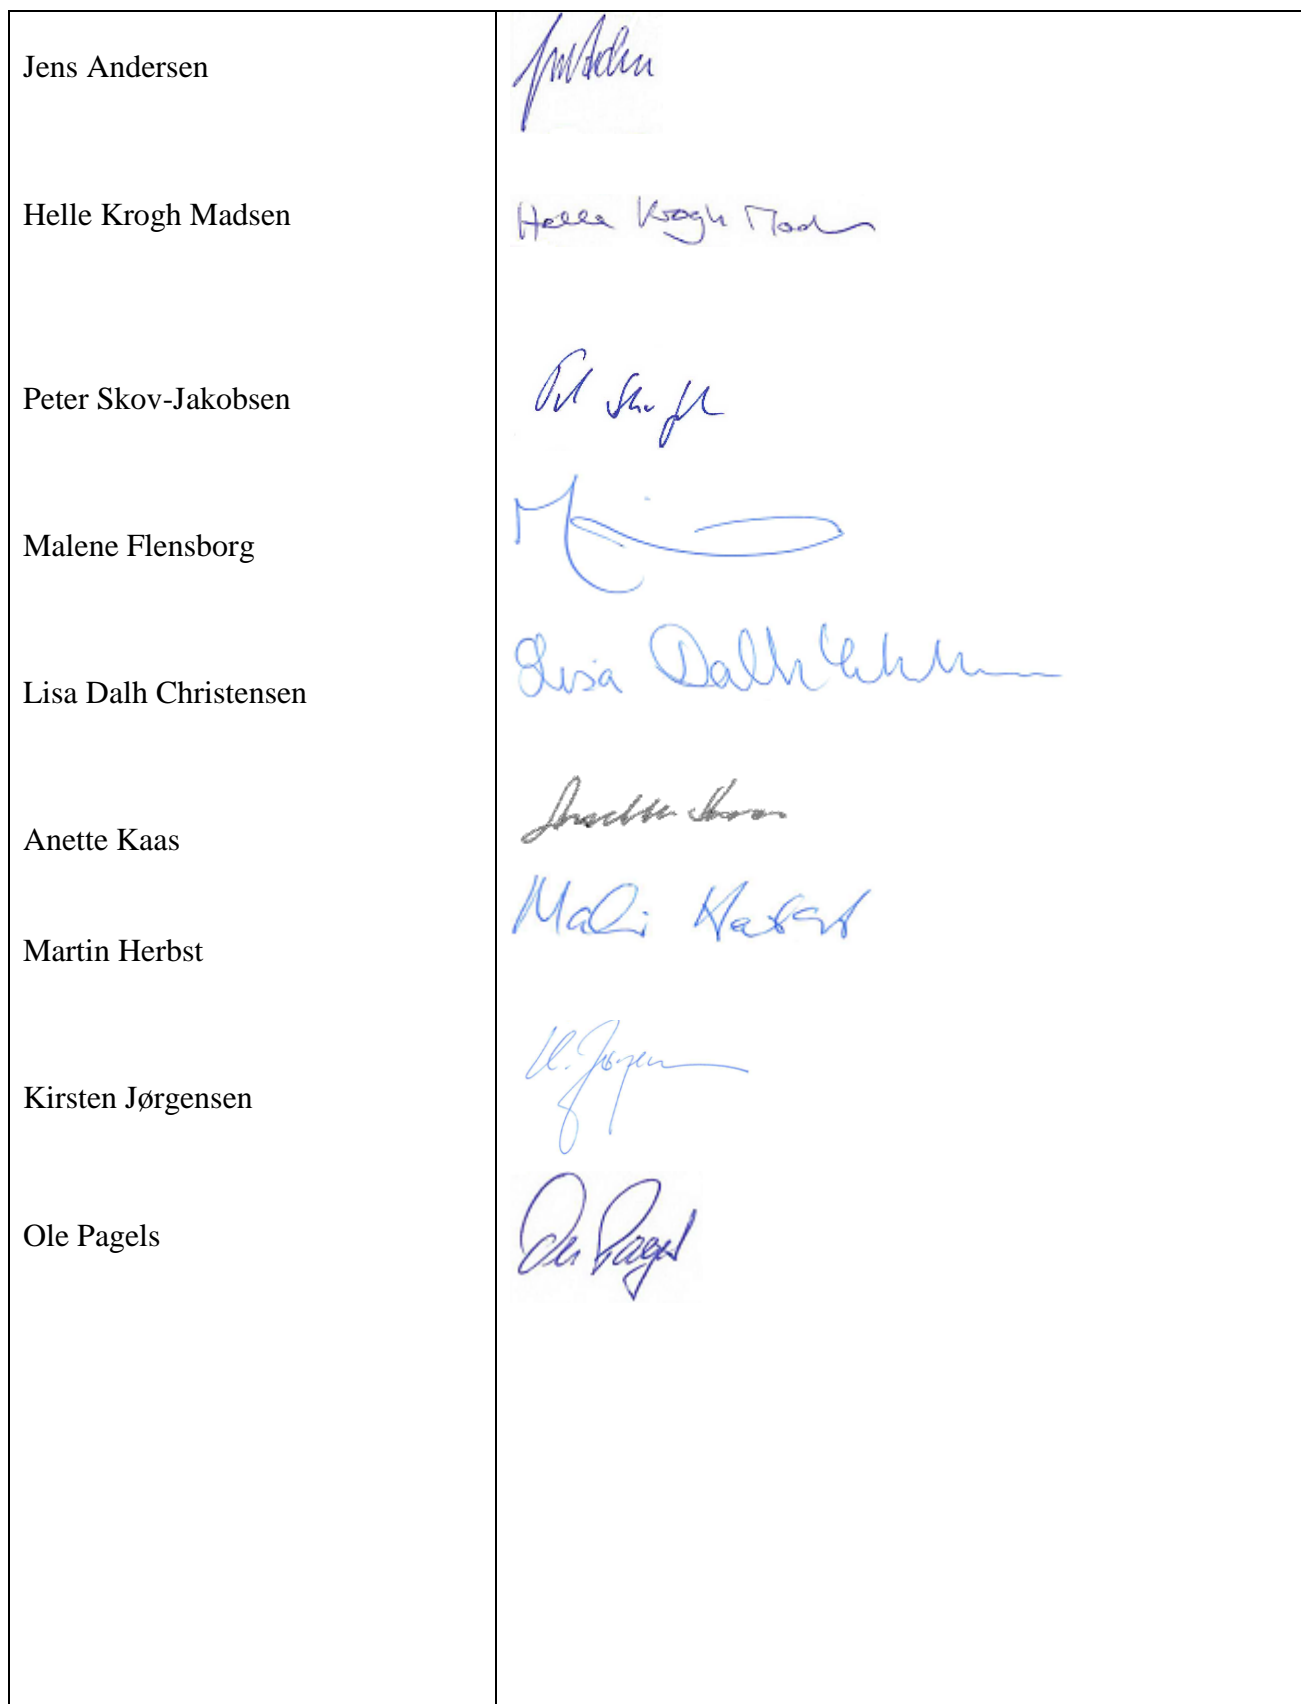 Jens Andersen
Helle Krogh Madsen
Helle Krogh Mad
Peter Skov-Jakobsen
Malene Flensborg
Lisa Dalh Christensen
Lisa Dalh
Anette Kaas
Martin Herbst
Kirsten Jørgensen
K. Jørgen
Ole Pagels
Ole Pagel